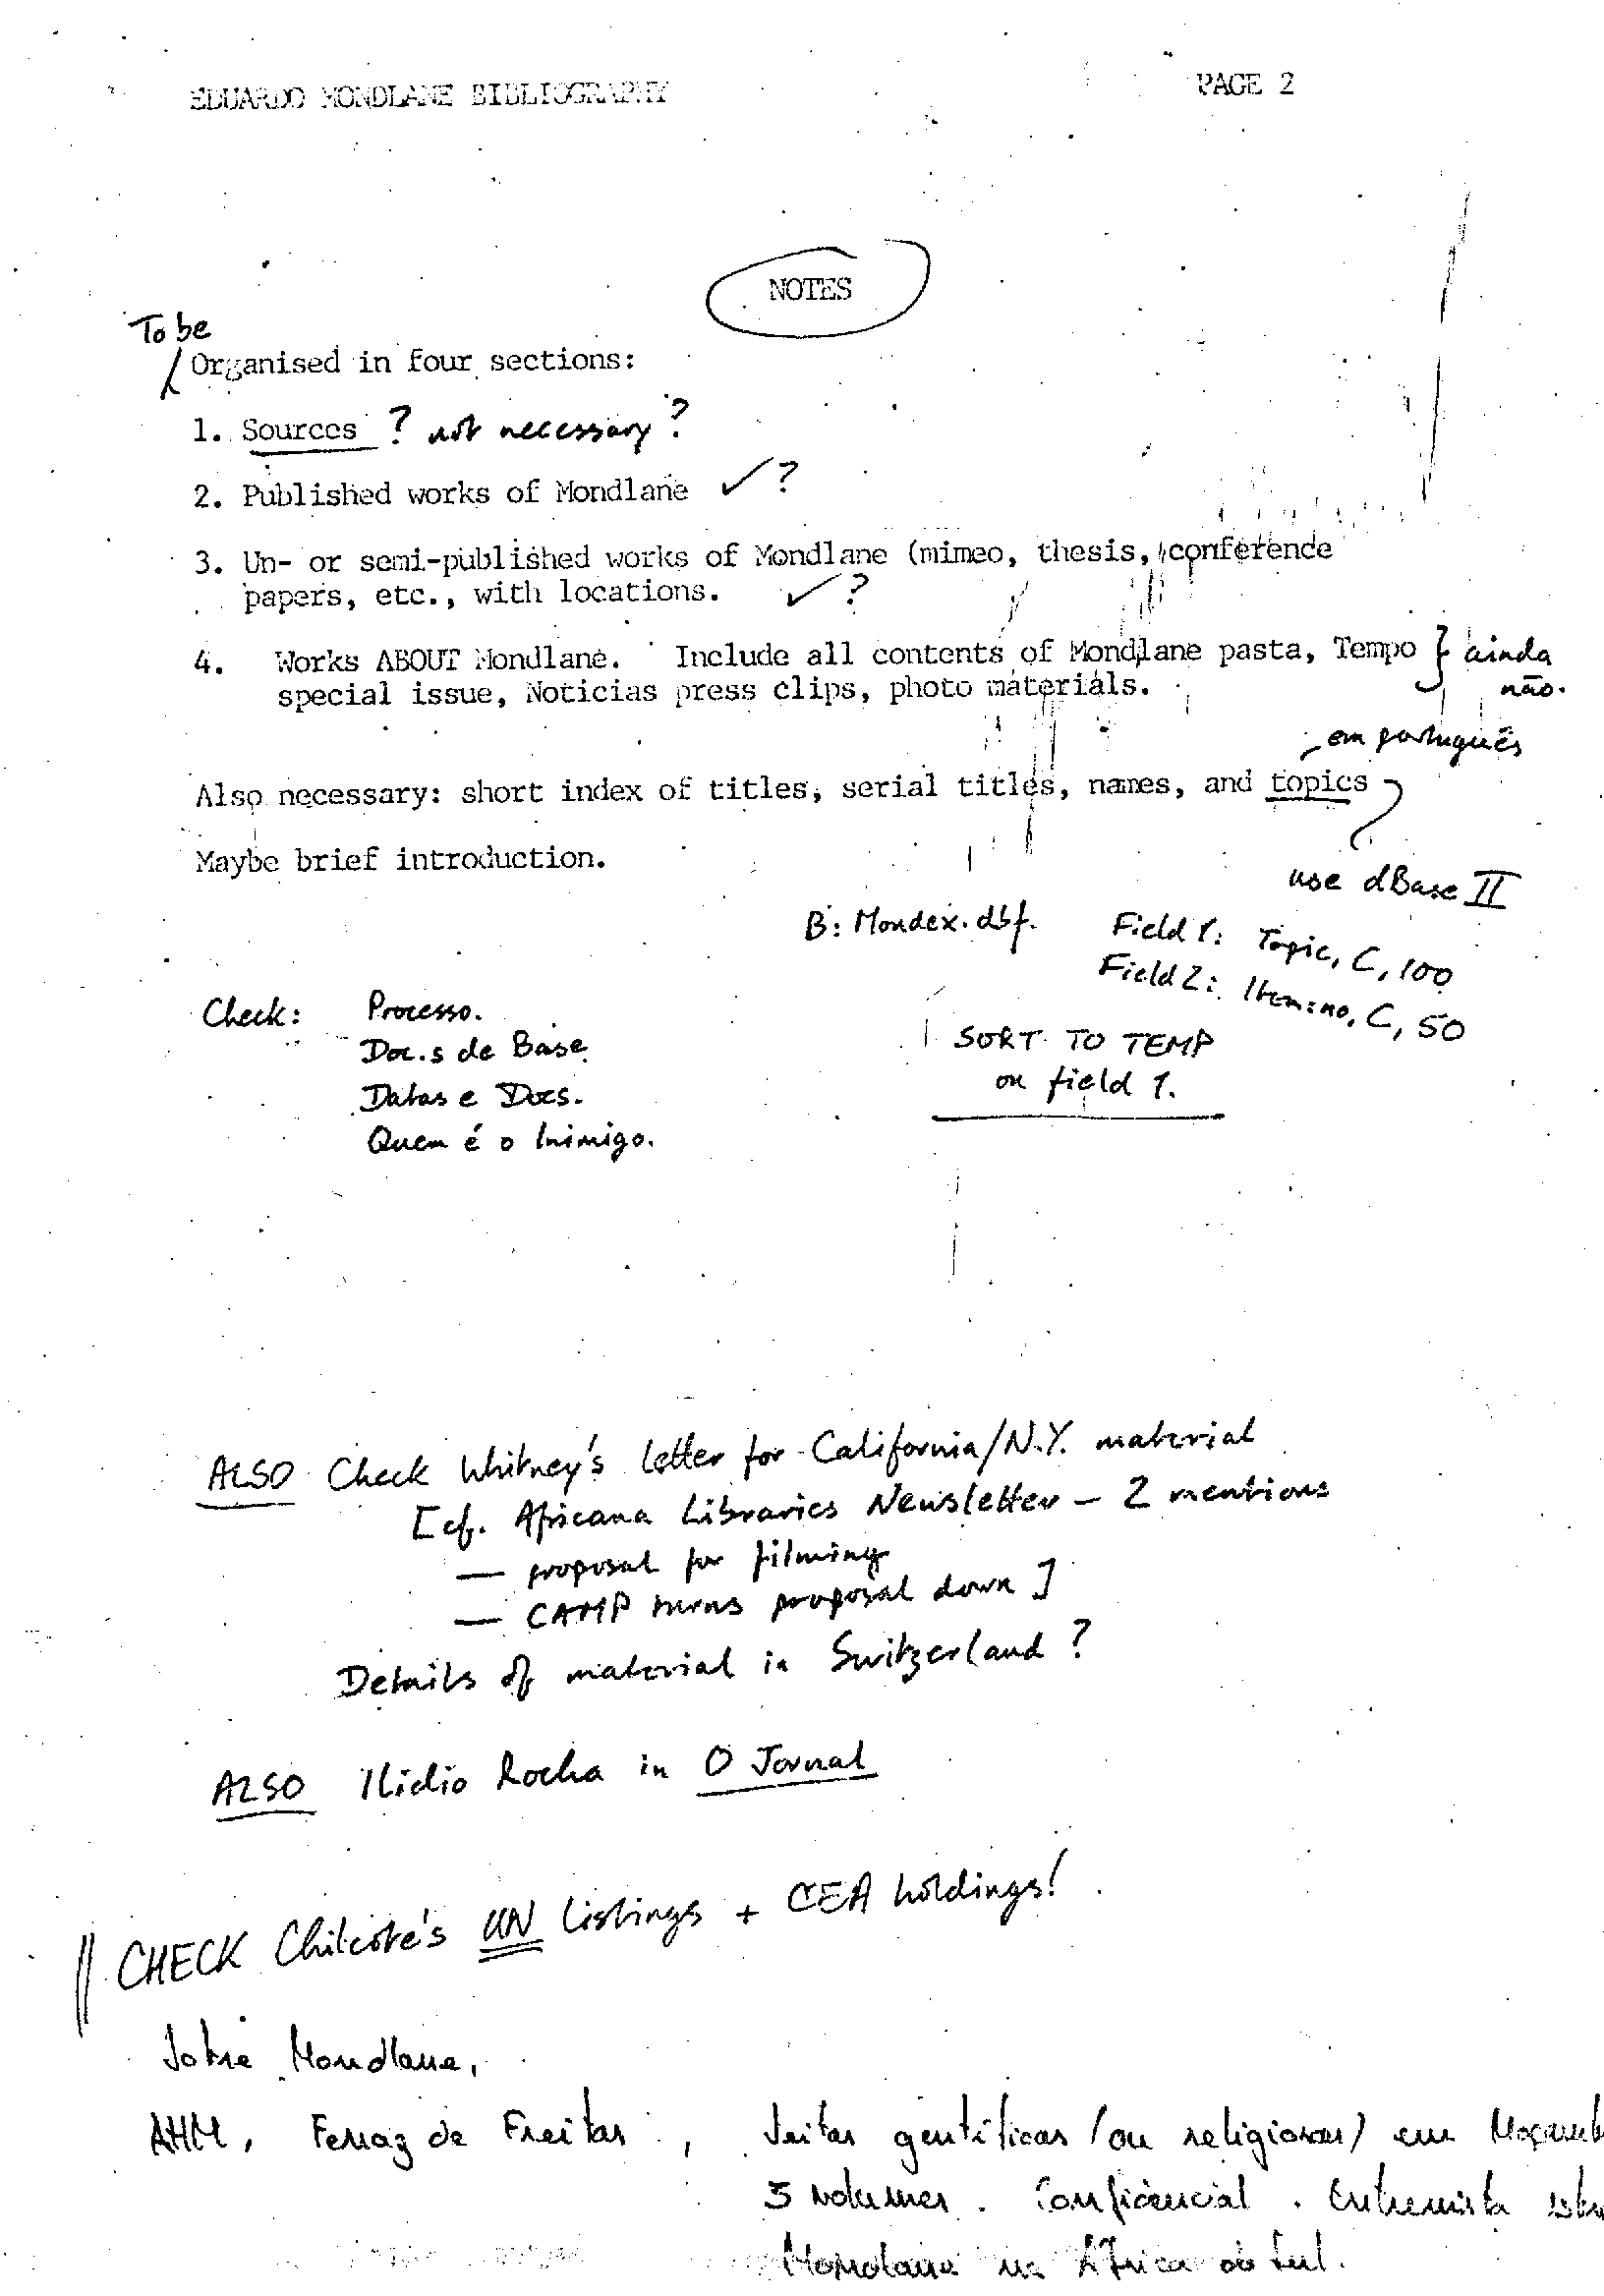 EDUARDO MONDLANE BIBLIOGRAPHY PAGE 2
NOTES
To be
Organised in four sections:
1. Sources ? not necessary?
2. Published works of Mondlane ✓?
3. Un- or semi-published works of Mondlane (mimeo, thesis, conference
papers, etc., with locations. ✓?
4. Works ABOUT Mondlane. Include all contents of Mondlane pasta, Tempo } ainda
special issue, Noticias press clips, photo materials. não.
em português
Also necessary: short index of titles, serial titles, names, and topics
Maybe brief introduction.
use dBase II
B: Mondex.dbf. Field 1: Topic, C, 100
Field 2: Item:no, C, 50
Check: Processo.
Doc.s de Base
Datas e Docs.
Quem é o Inimigo.
SORT TO TEMP
on field 1.
ALSO Check Whitney's letter for California/N.Y. material
[cf. Africana Libraries Newsletter – 2 mentions
— proposal for filming
— CAMP turns proposal down]
Details of material in Switzerland?
ALSO Ilidio Rocha in O Jornal
CHECK Chilcote's UN listings + CEA holdings!
Sobre Mondlane,
AHM, Ferraz de Freitas, Seitas gentílicas (ou religiosas) em
3 volumes. Confidencial.
Mondlane na África do Sul.